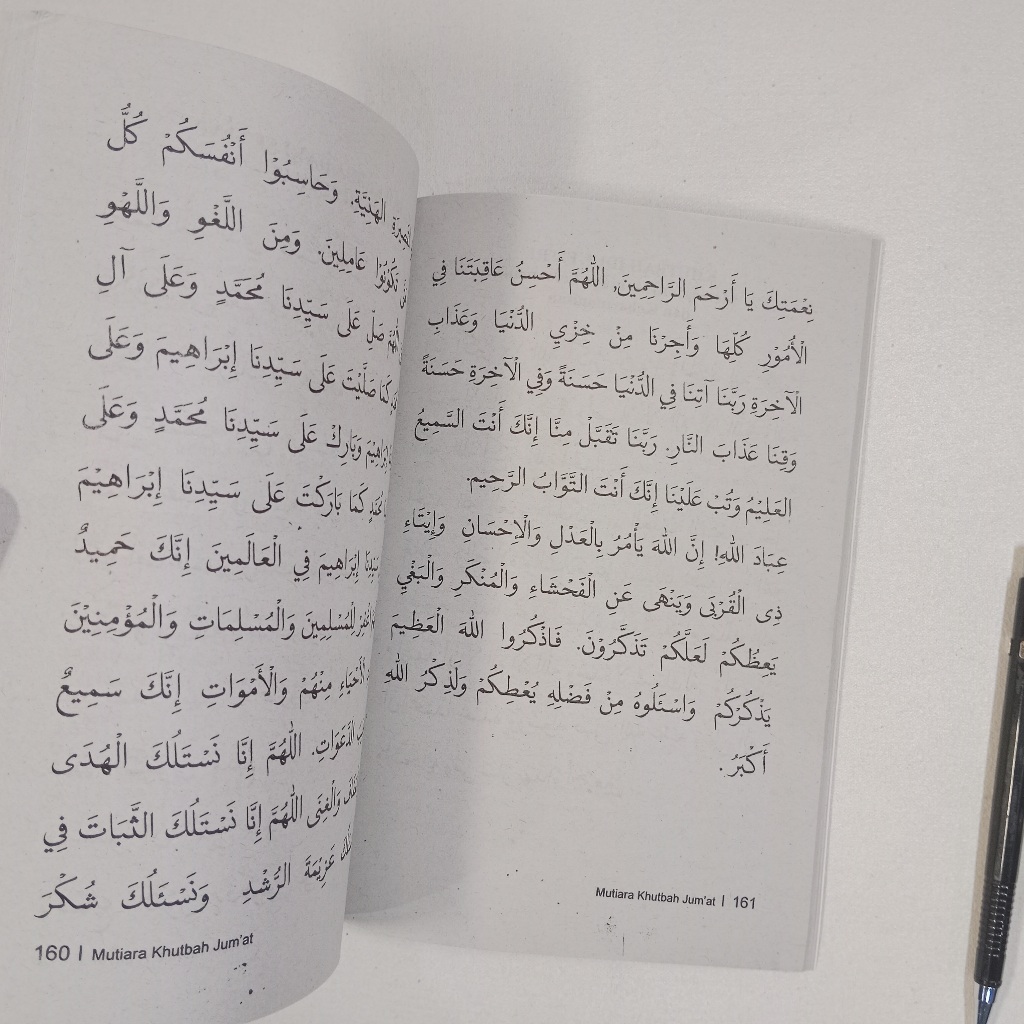 الْهَنِيَّةِ. وَحَاسِبُوْا أَنْفُسَكُمْ كُلَّ
تَكُوْنُوْا عَامِلِينَ. وَمِنَ اللَّغْوِ وَاللَّهْوِ
صَلِّ عَلَى سَيِّدِنَا مُحَمَّدٍ وَعَلَى آلِ
كَمَا صَلَّيْتَ عَلَى سَيِّدِنَا إِبْرَاهِيمَ وَعَلَى
إِبْرَاهِيْمَ وَبَارِكْ عَلَى سَيِّدِنَا مُحَمَّدٍ وَعَلَى
كَمَا بَارَكْتَ عَلَى سَيِّدِنَا إِبْرَاهِيْمَ
إِبْرَاهِيمَ فِي الْعَالَمِينَ إِنَّكَ حَمِيدٌ
لِلْمُسْلِمِينَ وَالْمُسْلِمَاتِ وَالْمُؤْمِنِيْنَ
الْأَحْيَاءِ مِنْهُمْ وَالْأَمْوَاتِ إِنَّكَ سَمِيعٌ
الدَّعَوَاتِ. اللّٰهُمَّ إِنَّا نَسْئَلُكَ الْهُدَى
وَالْغِنَى اللّٰهُمَّ إِنَّا نَسْتَلُكَ الثَّبَاتَ فِي
عَزِيْمَةَ الرُّشْدِ وَنَسْئَلُكَ شُكْرَ
160 | Mutiara Khutbah Jum'at
نِعْمَتِكَ يَا أَرْحَمَ الرَّاحِمِينَ, اللّٰهُمَّ أَحْسِنُ عَاقِبَتَنَا فِي
الْأُمُوْرِ كُلِّهَا وَأَجِرْنَا مِنْ خِزْيِ الدُّنْيَا وَعَذَابِ
الْآخِرَةِ رَبَّنَا آتِنَا فِي الدُّنْيَا حَسَنَةً وَفِي الْآخِرَةِ حَسَنَةً
وَقِنَا عَذَابَ النَّارِ. رَبَّنَا تَقَبَّلْ مِنَّا إِنَّكَ أَنْتَ السَّمِيعُ
العَلِيْمُ وَتُبْ عَلَيْنَا إِنَّكَ أَنْتَ التَّوَّابُ الرَّحِيم.
عِبَادَ اللهِ! إِنَّ اللهَ يَأْمُرُ بِالْعَدْلِ وَالْاِحْسَانِ وَإِيْتَاءِ
ذِى الْقُرْبَى وَيَنْهَى عَنِ الْفَحْشَاءِ وَالْمُنْكَرِ وَالْبَغْيِ
يَعِظُكُمْ لَعَلَّكُمْ تَذَكَّرُوْنَ. فَاذْكُرُوا اللهَ الْعَظِيمَ
يَذْكُرْكُمْ وَاسْئَلُوهُ مِنْ فَضْلِهِ يُعْطِكُمْ وَلَذِكْرُ اللهِ
أَكْبَرُ.
Mutiara Khutbah Jum'at | 161